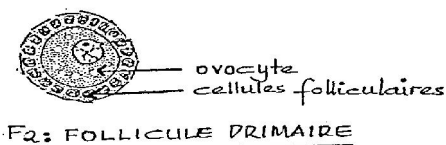 ovocyte
cellules folliculaires
F2: FOLLICULE PRIMAIRE